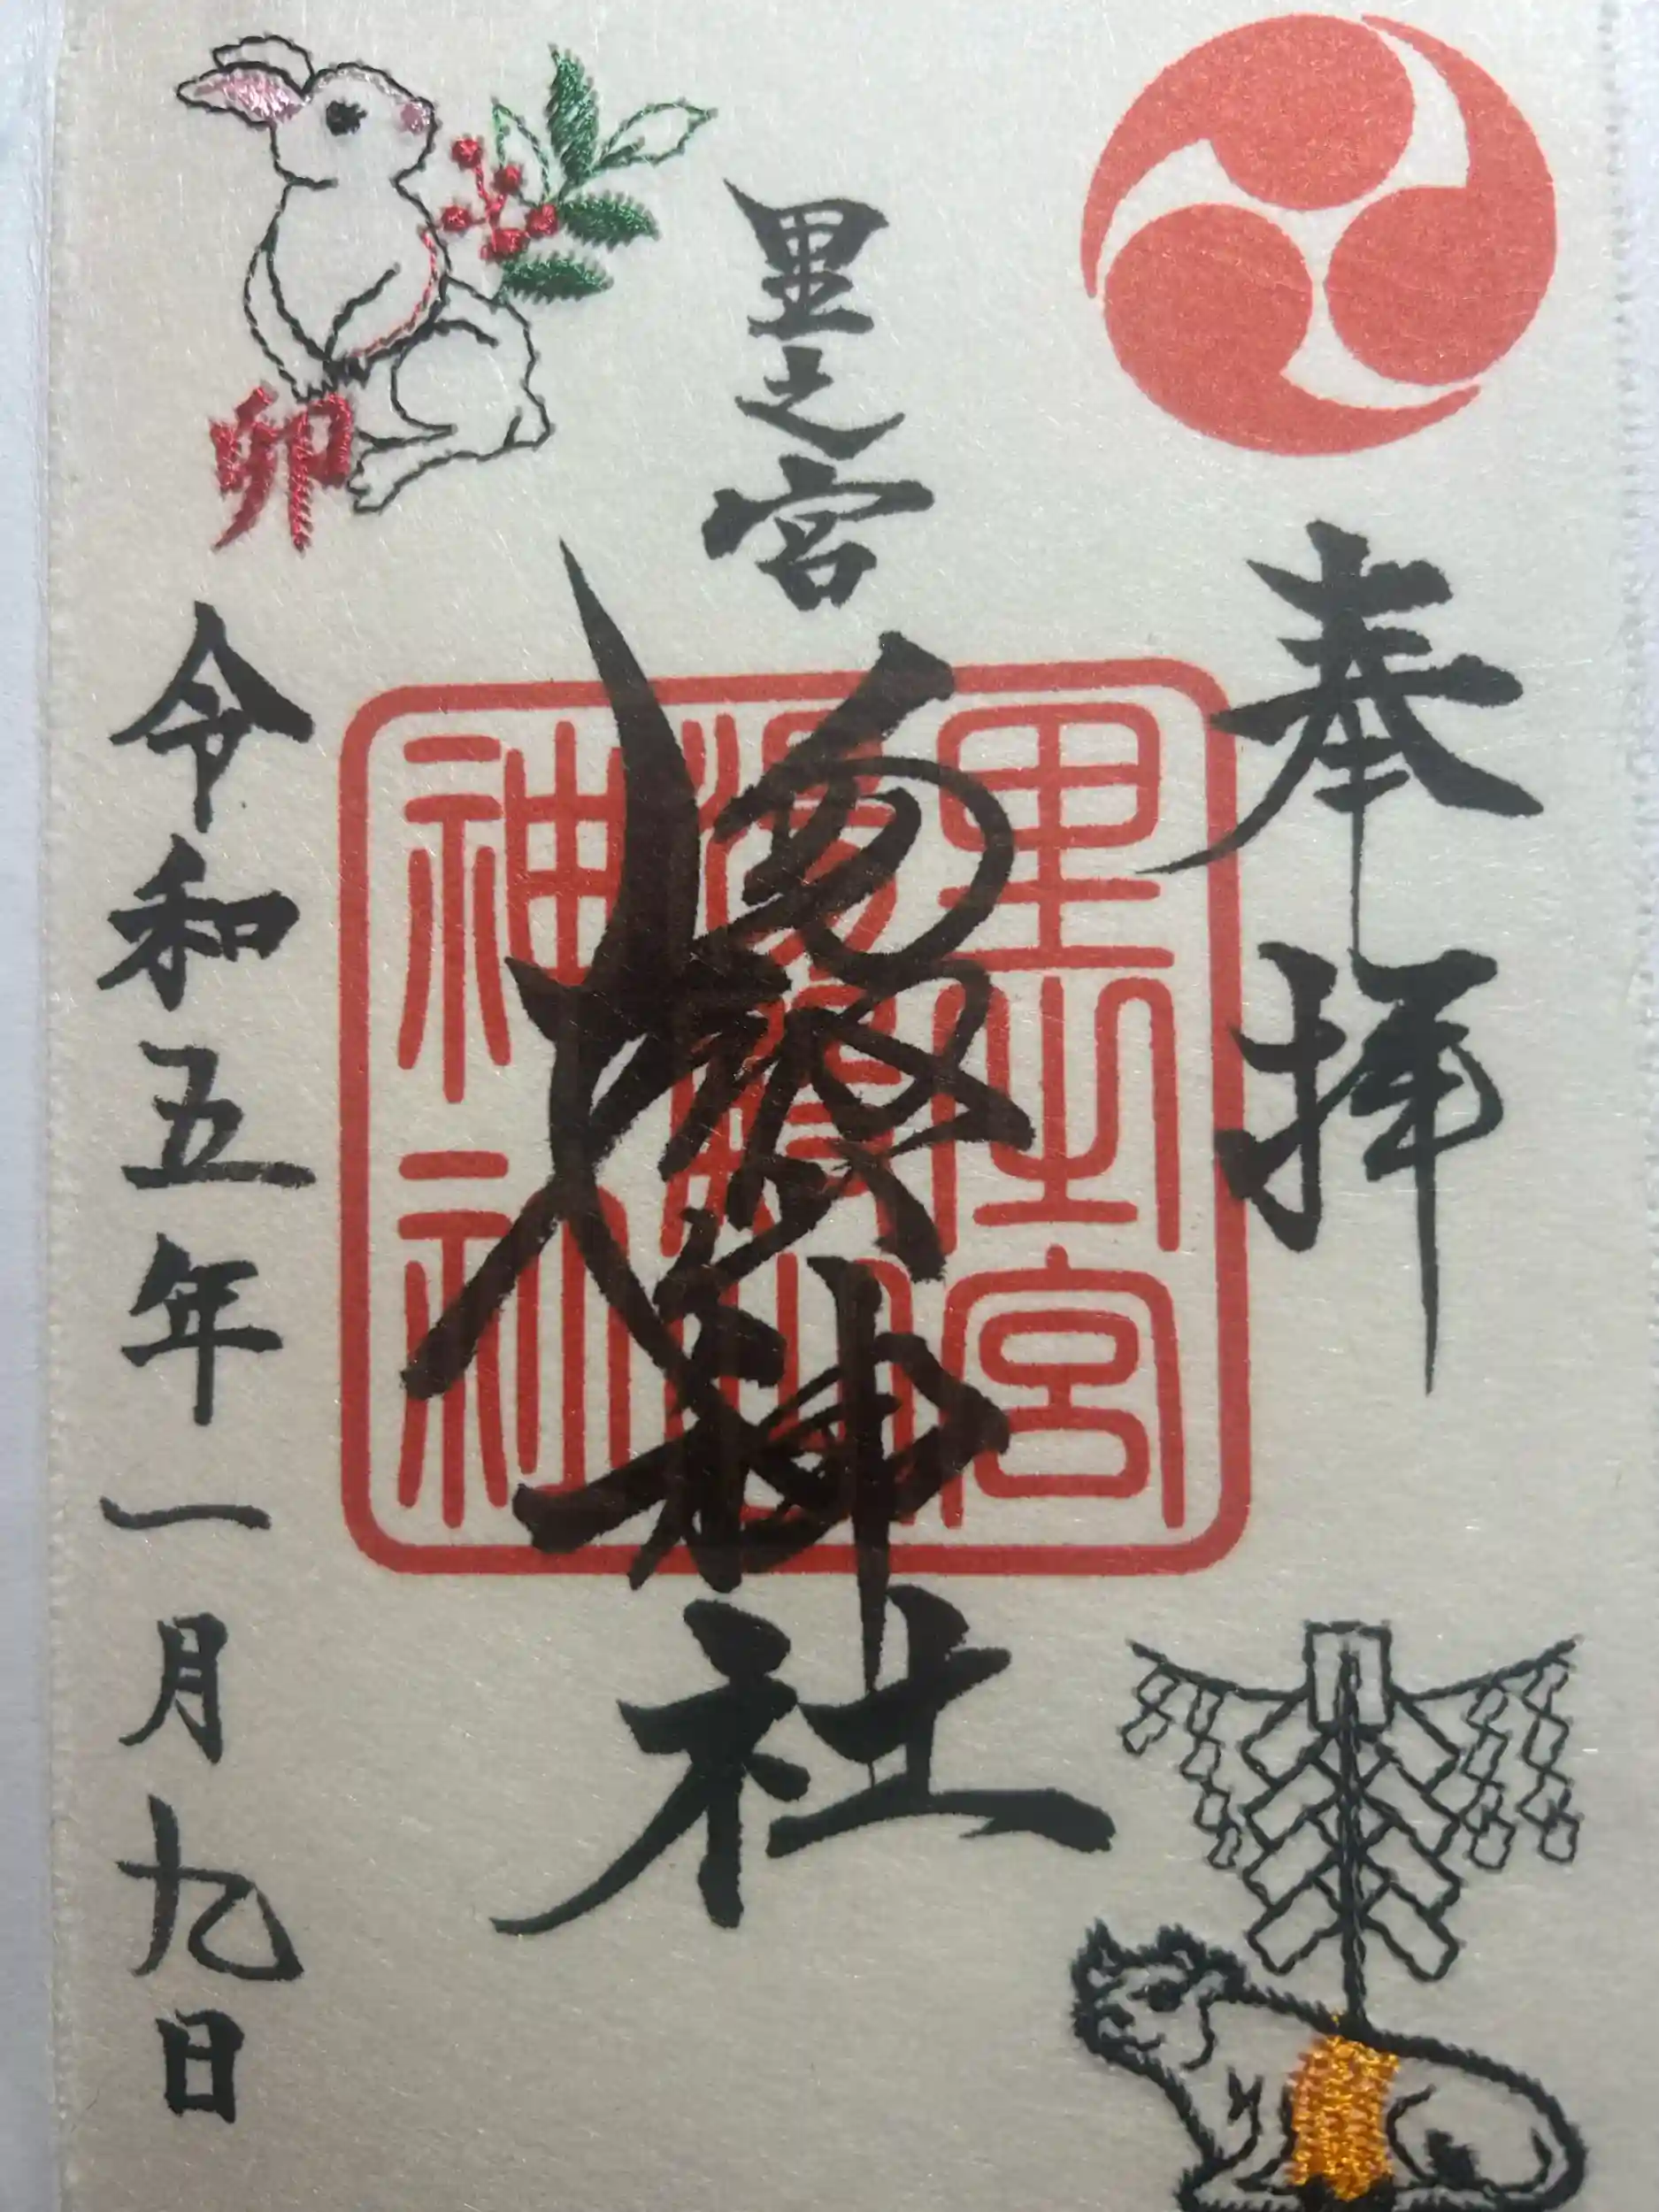 奉拝
里之宮
湯殿山神社
里之宮
湯殿山
神社
卯
令和五年一月九日